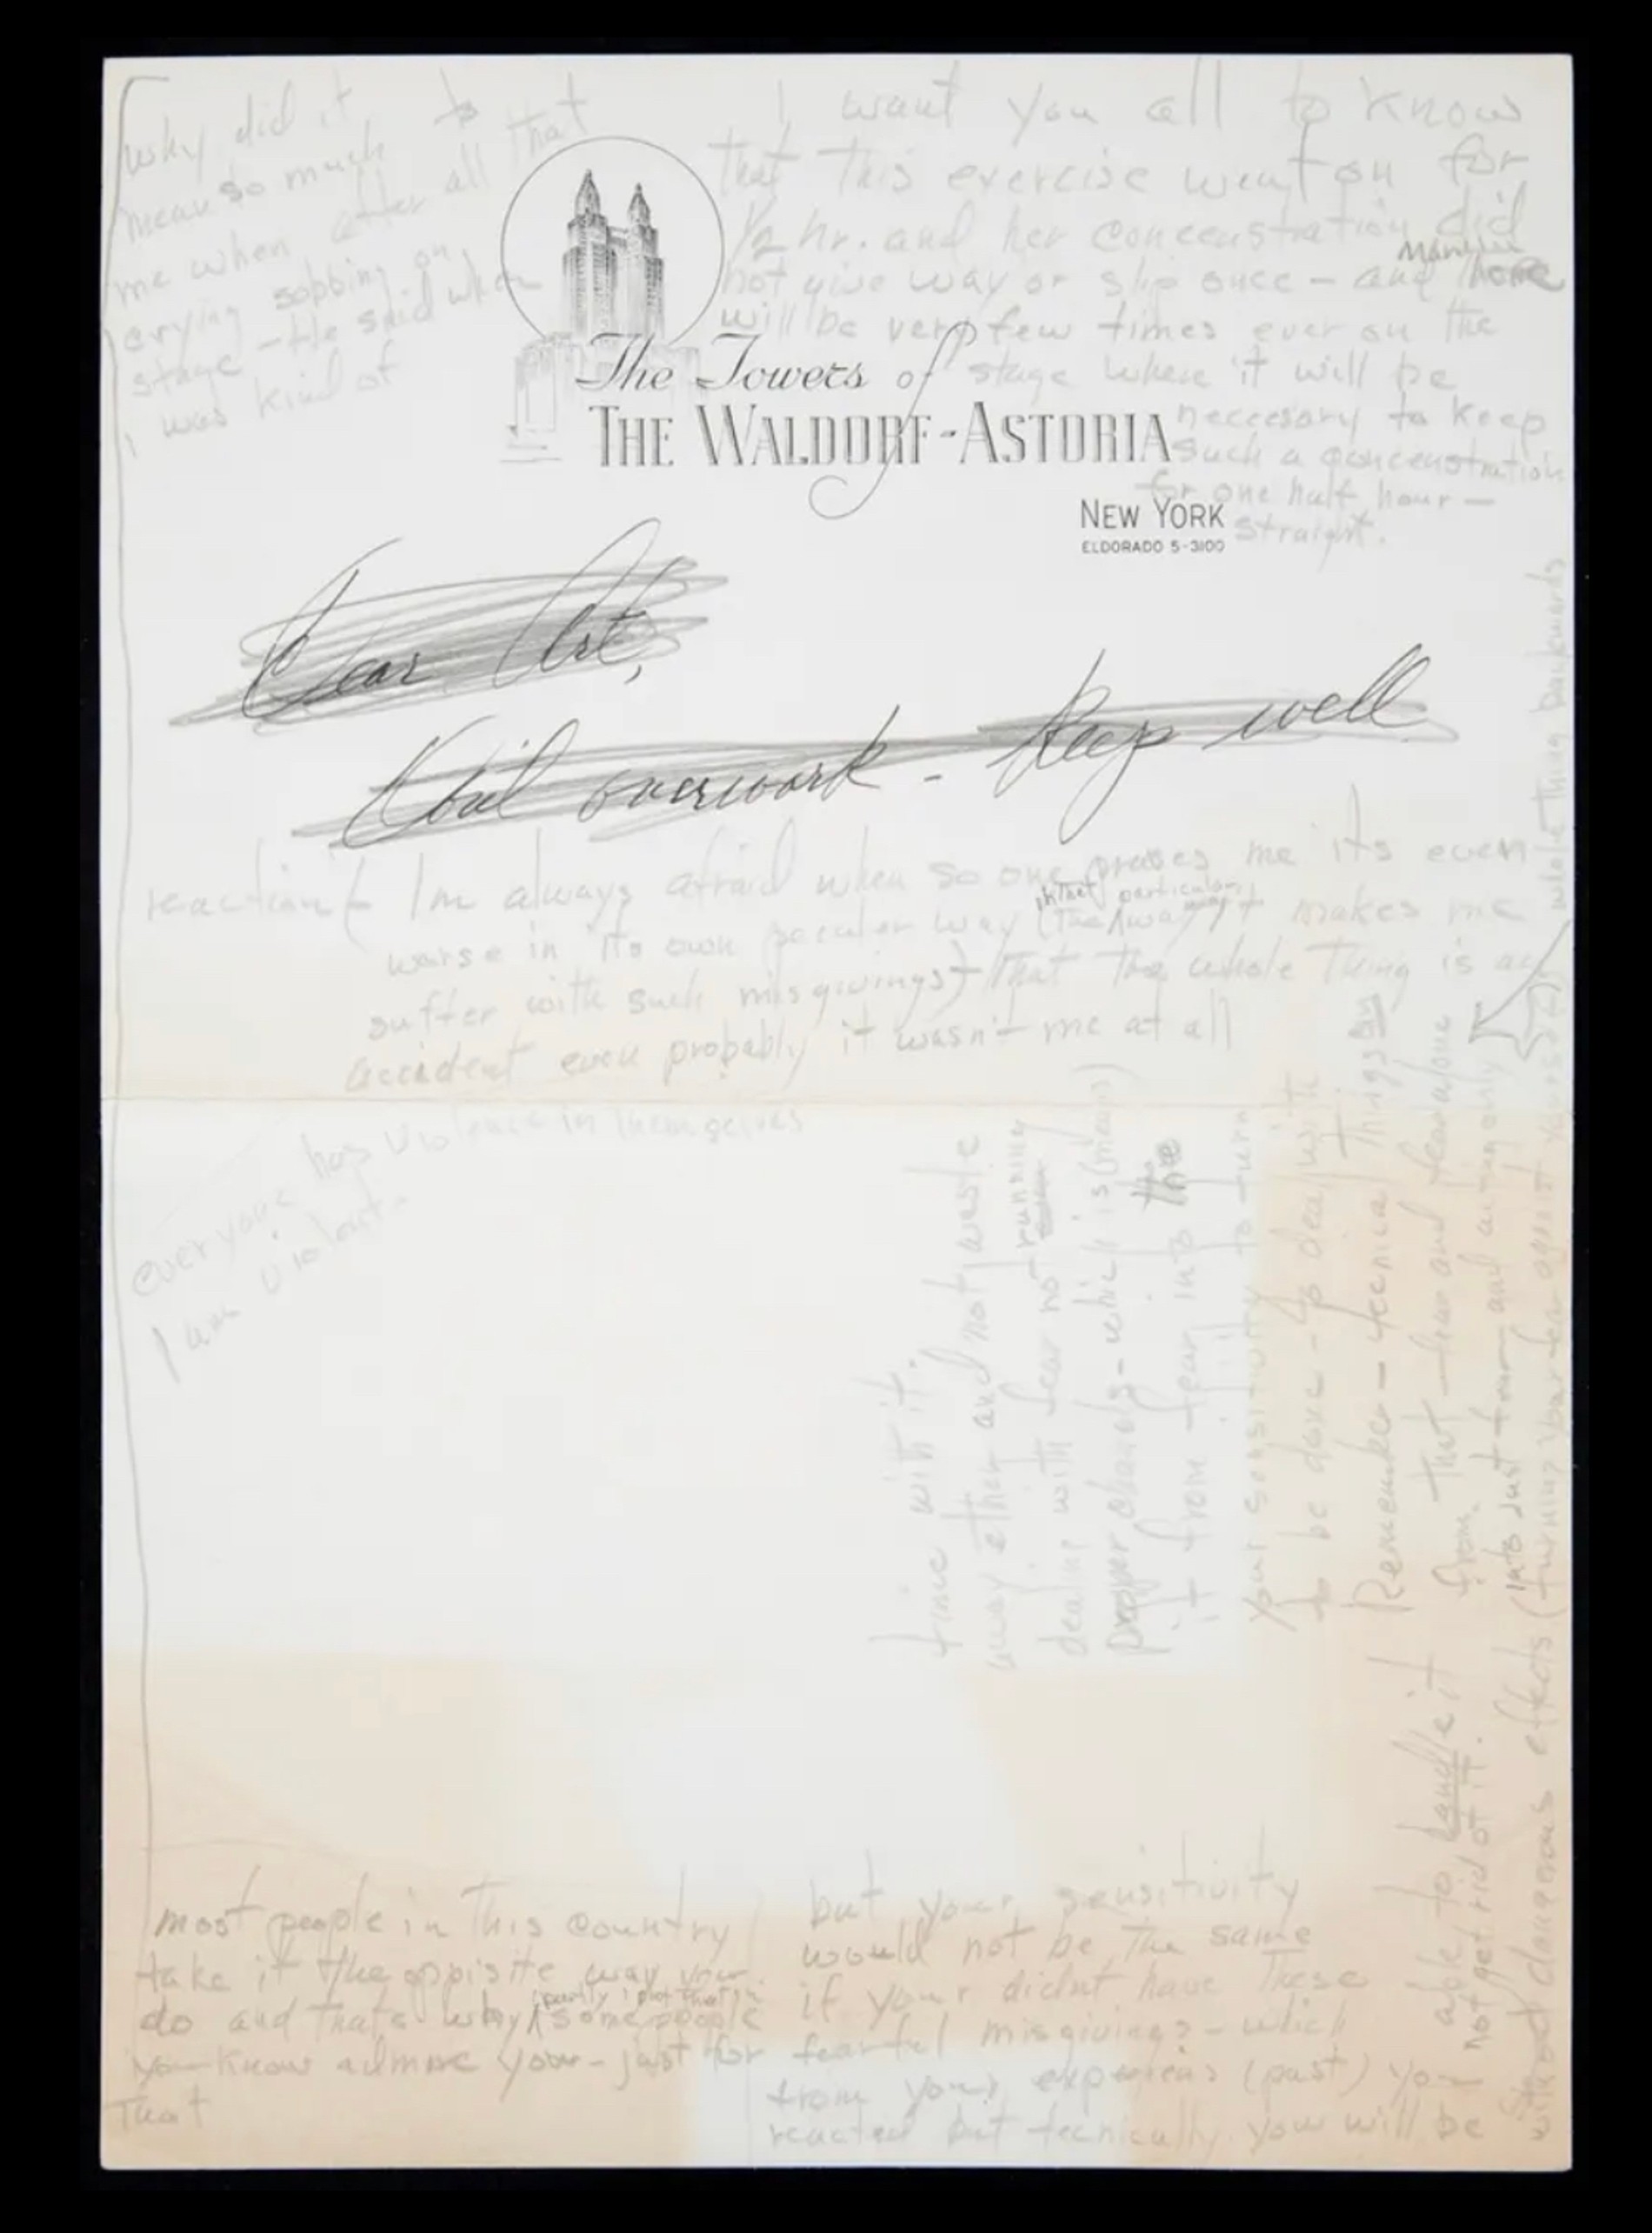 why did it
mean so much to
me when after all that
crying sobbing on
stage – He said when
I was kind of
I want you all to know
that this exercise went on for
½ hr. and her concenstration did
not give way or slip once – and
will be very few times ever on the
stage where it will be
neccesary to keep
such a concenstration
for one half hour –
straight.
The Towers of
THE WALDORF-ASTORIA
NEW YORK
ELDORADO 5-3100
Dear Art,
overwork - Keep well
reaction – Im always afraid when so one praises me its even
worse in its own peculer way (in that particular way) it makes me
suffer with such misgivings) that the whole thing is an
accident even probably it wasn't me at all
everyone has violence in themselves
I am violent.
most people in this country
take it the oppisite way you
do and thats why (partly some people
you know admire you – just for
that
but your sensitivity
would not be the same
if your didnt have these
fearful misgivings – which
from your experiens (past) you
reacted but tecnically you will be
able to handle it
not get rid of it.
Remember – tecnical things
from that – fear and fear alone
into just fear – and acting only
without dangerous effects (turning your fear against yourself) whole thing backwards
to be done – to deal with
your sensitivity to turn
it from fear into the
proper chanels – which is (means)
dealing with fear not running
away either and not waste
time with it.